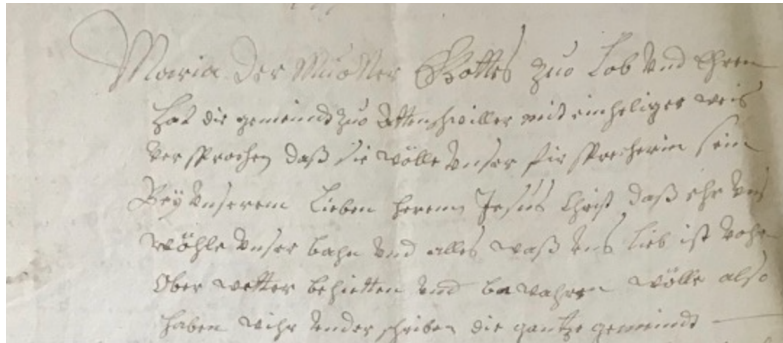 Maria Der Muotter Gottes zuo Lob und Ehren
hat die gemeindt zuo Attenschwiller mit einheliger weis
versprochen daß sie wölle unser fürsprecherin sein
Bey unserem Lieben herren Jesus Christ daß ehr uns
wöhle unser bahn und alles waß uns lieb ist vohr
Ober wetter behietten und bewahren wölle also
haben wihr underschriben die gantze gemeindt